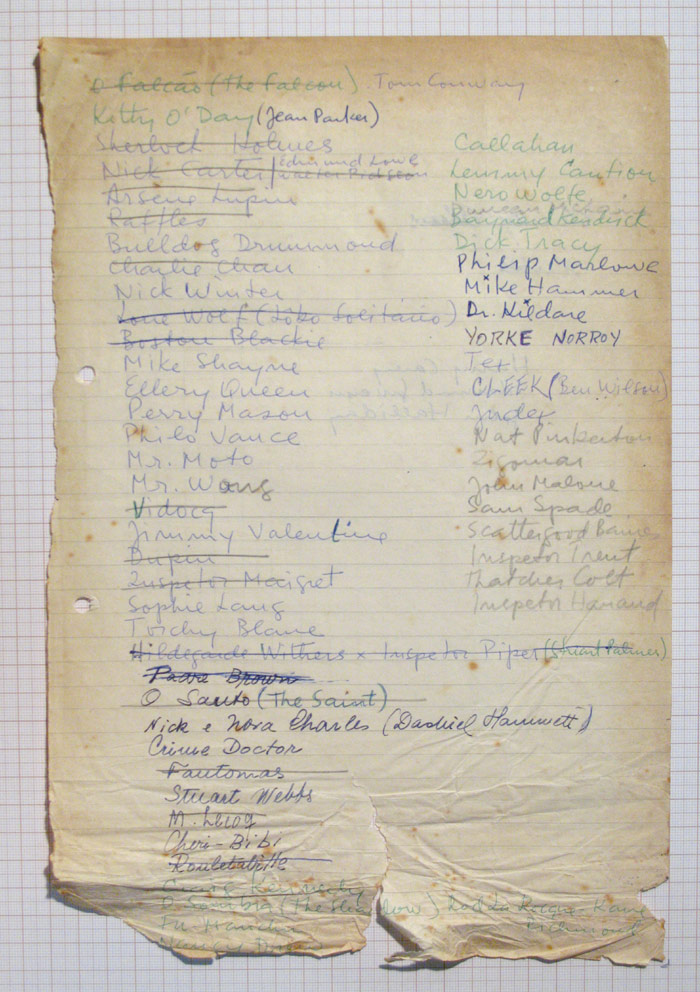 O Falcão (The Falcon). Tom Conway
Kitty O'Day (Jean Parker)
Sherlock Holmes
Nick Carter / Edmund Lowe Walter Pidgeon
Arsene Lupin
Raffles
Bulldog Drummond
Charlie Chan
Nick Winter
Lone Wolf (Lobo Solitario)
Boston Blackie
Mike Shayne
Ellery Queen
Perry Mason
Philo Vance
Mr. Moto
Mr. Wong
Vidocq
Jimmy Valentine
Dupin
Inspetor Maigret
Sophie Lang
Torchy Blane
Hildegarde Withers x Inspetor Piper (Stuart Palmer)
Padre Brown
O Santo (The Saint)
Nick e Nora Charles (Dashiel Hammett)
Crime Doctor
Fantomas
Stuart Webbs
M. Lecoq
Cheri-Bibi
Rouletabille
Craig Kennedy
O Sombra (The Shadow) Rod La Rocque - Kane Richmond
Fu Manchu
Nancy Drew
Callahan
Lemmy Caution
Nero Wolfe
Baynard Kendrick
Dick Tracy
Philip Marlowe
Mike Hammer
Dr. Kildare
YORKE NORROY
Tex
CLEEK (Ben Wilson)
Judex
Nat Pinkerton
Zigomar
John Malone
Sam Spade
Scattergood Baines
Inspetor Trent
Thatcher Colt
Inspetor Hanaud